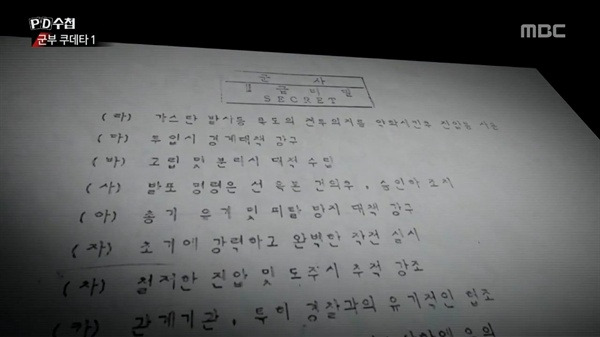 PD수첩
군부 쿠데타 1
MBC
군 사
Ⅱ 급 비 밀
SECRET
(라) 가스탄 발사를
(마) 투입시 경계대책 강구
(바) 고립 및 분리시 대책 수립
(사) 발포 명령은 선 육본 건의후, 승인하 조치
(아) 총기 유기 및 피탈 방지 대책 강구
(자) 초기에 강력하고 완벽한 작전 실시
(차) 철저한 진압 및 도주시 추적 강조
(카) 관계기관, 특히 경찰과의 유기적인 협조